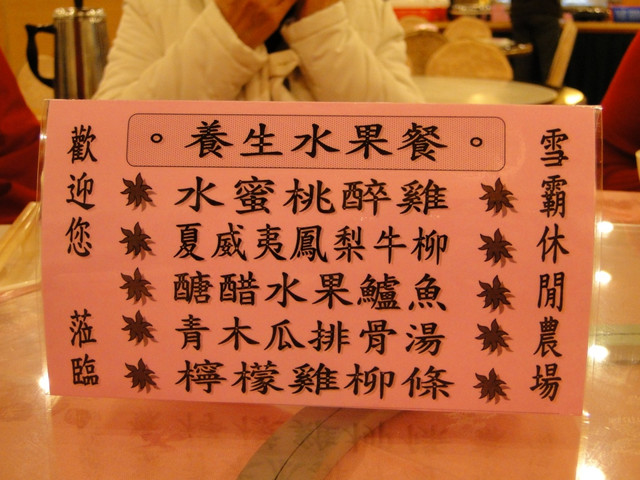 養生水果餐
水蜜桃醉雞
夏威夷鳳梨牛柳
醣醋水果鱸魚
青木瓜排骨湯
檸檬雞柳條
雪霸休閒農場
歡迎您 蒞臨